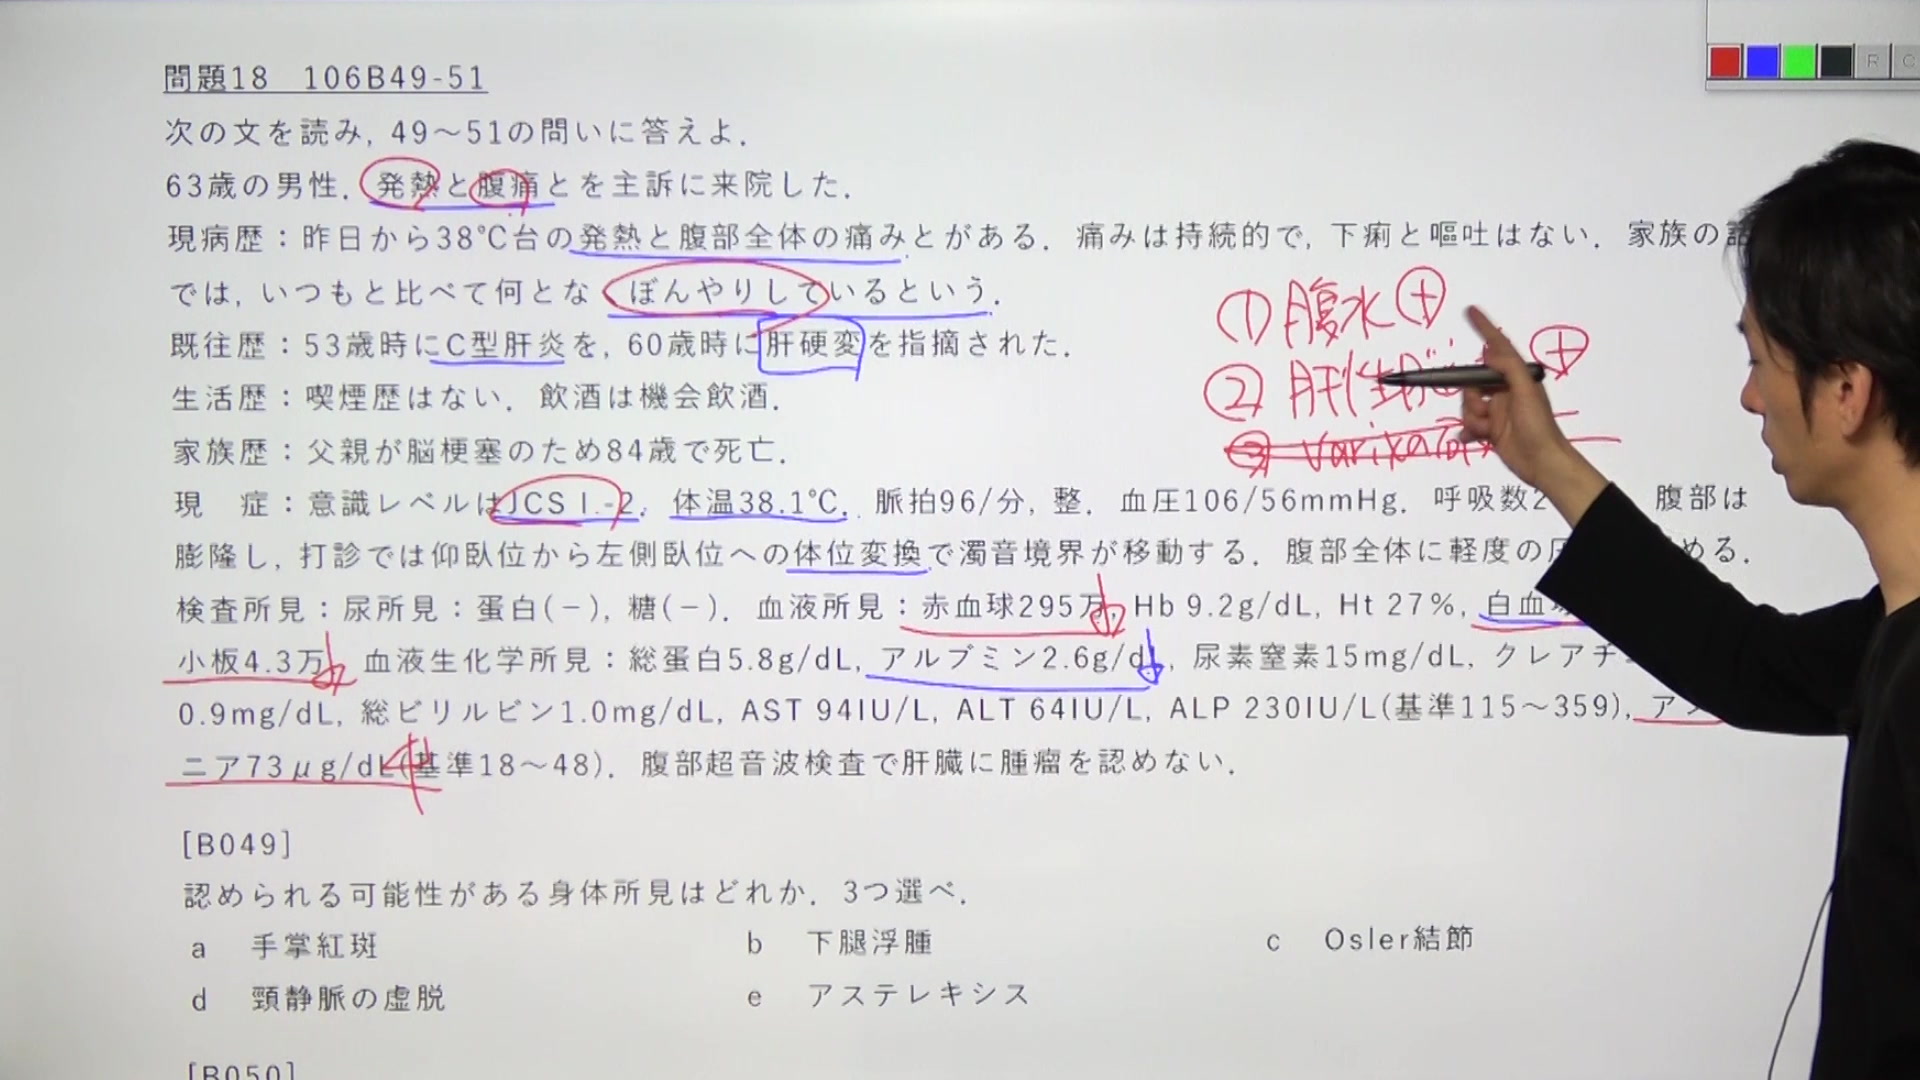 問題18 106B49-51
次の文を読み, 49〜51の問いに答えよ.
63歳の男性. 発熱と腹痛とを主訴に来院した.
現病歴：昨日から38℃台の発熱と腹部全体の痛みとがある. 痛みは持続的で, 下痢と嘔吐はない. 家族の
では, いつもと比べて何とな ぼんやりしているという.
① 腹水 ⊕
既往歴：53歳時にC型肝炎を, 60歳時に肝硬変を指摘された.
② 肝性 ⊕
生活歴：喫煙歴はない. 飲酒は機会飲酒.
③ varix
家族歴：父親が脳梗塞のため84歳で死亡.
現 症：意識レベルはJCSⅠ-2. 体温38.1℃. 脈拍96/分, 整. 血圧106/56mmHg. 呼吸数2 腹部は
膨隆し, 打診では仰臥位から左側臥位への体位変換で濁音境界が移動する. 腹部全体に軽度の める.
検査所見：尿所見：蛋白(－), 糖(－). 血液所見：赤血球295万, Hb 9.2g/dL, Ht 27%, 白血
小板4.3万. 血液生化学所見：総蛋白5.8g/dL, アルブミン2.6g/dL, 尿素窒素15mg/dL, クレアチ
0.9mg/dL, 総ビリルビン1.0mg/dL, AST 94IU/L, ALT 64IU/L, ALP 230IU/L(基準115〜359), ア
ニア73μg/dL(基準18〜48). 腹部超音波検査で肝臓に腫瘤を認めない.
[B049]
認められる可能性がある身体所見はどれか. 3つ選べ.
a 手掌紅斑 b 下腿浮腫 c Osler結節
d 頸静脈の虚脱 e アステレキシス
[B050]
R C